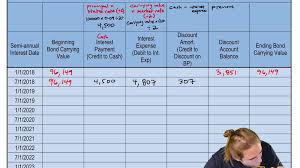 principal x
market rate (÷2)
100,000 x
carrying value
x market rate
(÷2)
carrying value x
÷ 2
cash - interest
expense
previous
Semi-annual Interest Date
Beginning Bond Carrying Value
Cash Interest Payment (Credit to Cash)
Interest Expense (Debit to Int. Exp)
Discount Amort. (Credit to Discount on BP)
Discount Account Balance
Ending Bond Carrying Value
1/1/2018 96,149 3,851 96,149
7/1/2018 96,149 4,500 4,807 307
1/1/2019
7/1/2019
1/1/2020
7/1/2020
1/1/2021
7/1/2021
1/1/2022
7/1/2022
1/1/2023